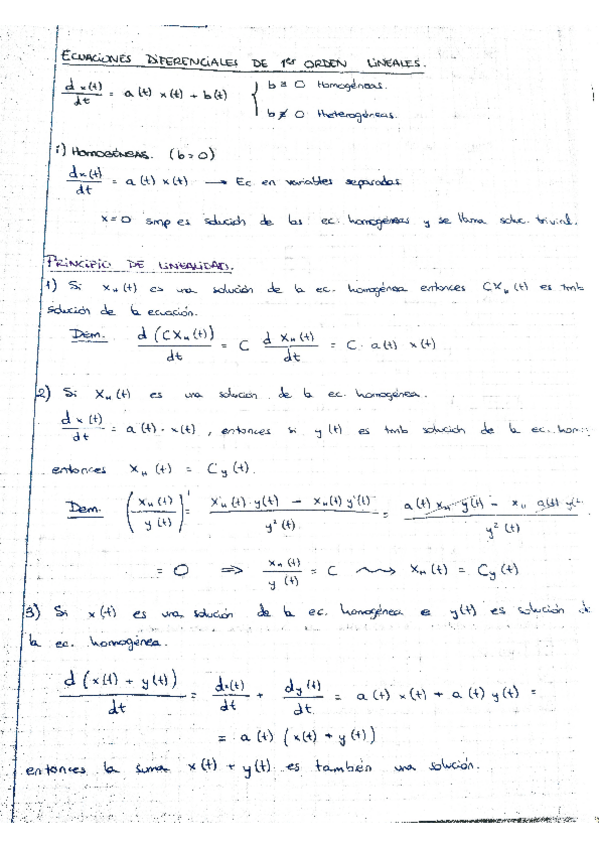 ECUACIONES DIFERENCIALES DE 1er ORDEN LINEALES.
d x(t)/dt = a(t) x(t) + b(t) { b = 0 Homogéneas.
b ≠ 0 Heterogéneas.
i) HOMOGÉNEAS. (b=0)
dx(t)/dt = a(t) x(t) → Ec en variables separadas
x=0 smp es solución de las ec. homogéneas y se llama soluc. trivial.
PRINCIPIO DE LINEALIDAD.
1) Si x_H(t) es una solución de la ec. homogénea entonces C X_H(t) es tmb
solución de la ecuación.
Dem. d(C X_H(t))/dt = C d X_H(t)/dt = C · a(t) x(t)
2) Si X_H(t) es una solución de la ec. homogénea.
d x(t)/dt = a(t) · x(t), entonces si y(t) es tmb solución de la ec. hom
entonces X_H(t) = C y(t).
Dem. (X_H(t)/y(t))' = (X'_H(t) · y(t) - X_H(t) y'(t))/y²(t) = (a(t) X_H y(t) - X_H a(t) y(t)/y²(t)
= 0 ⇒ X_H(t)/y(t) = C ⇝ X_H(t) = C y(t)
3) Si x(t) es una solución de la ec. homogénea e y(t) es solución d
la ec. homogénea.
d(x(t) + y(t))/dt = dx(t)/dt + dy(t)/dt = a(t) x(t) + a(t) y(t) =
= a(t) (x(t) + y(t))
entonces la suma x(t) + y(t) es también una solución.